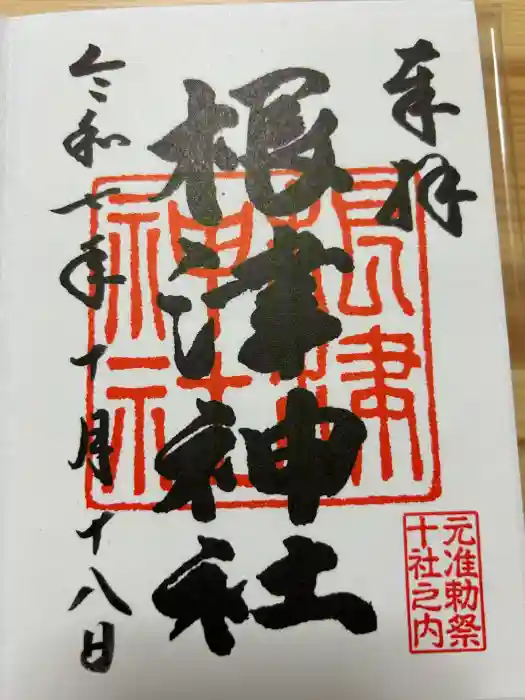 奉拝
根津神社
根津神社
令和七年十月十八日
元准勅祭
十社之内